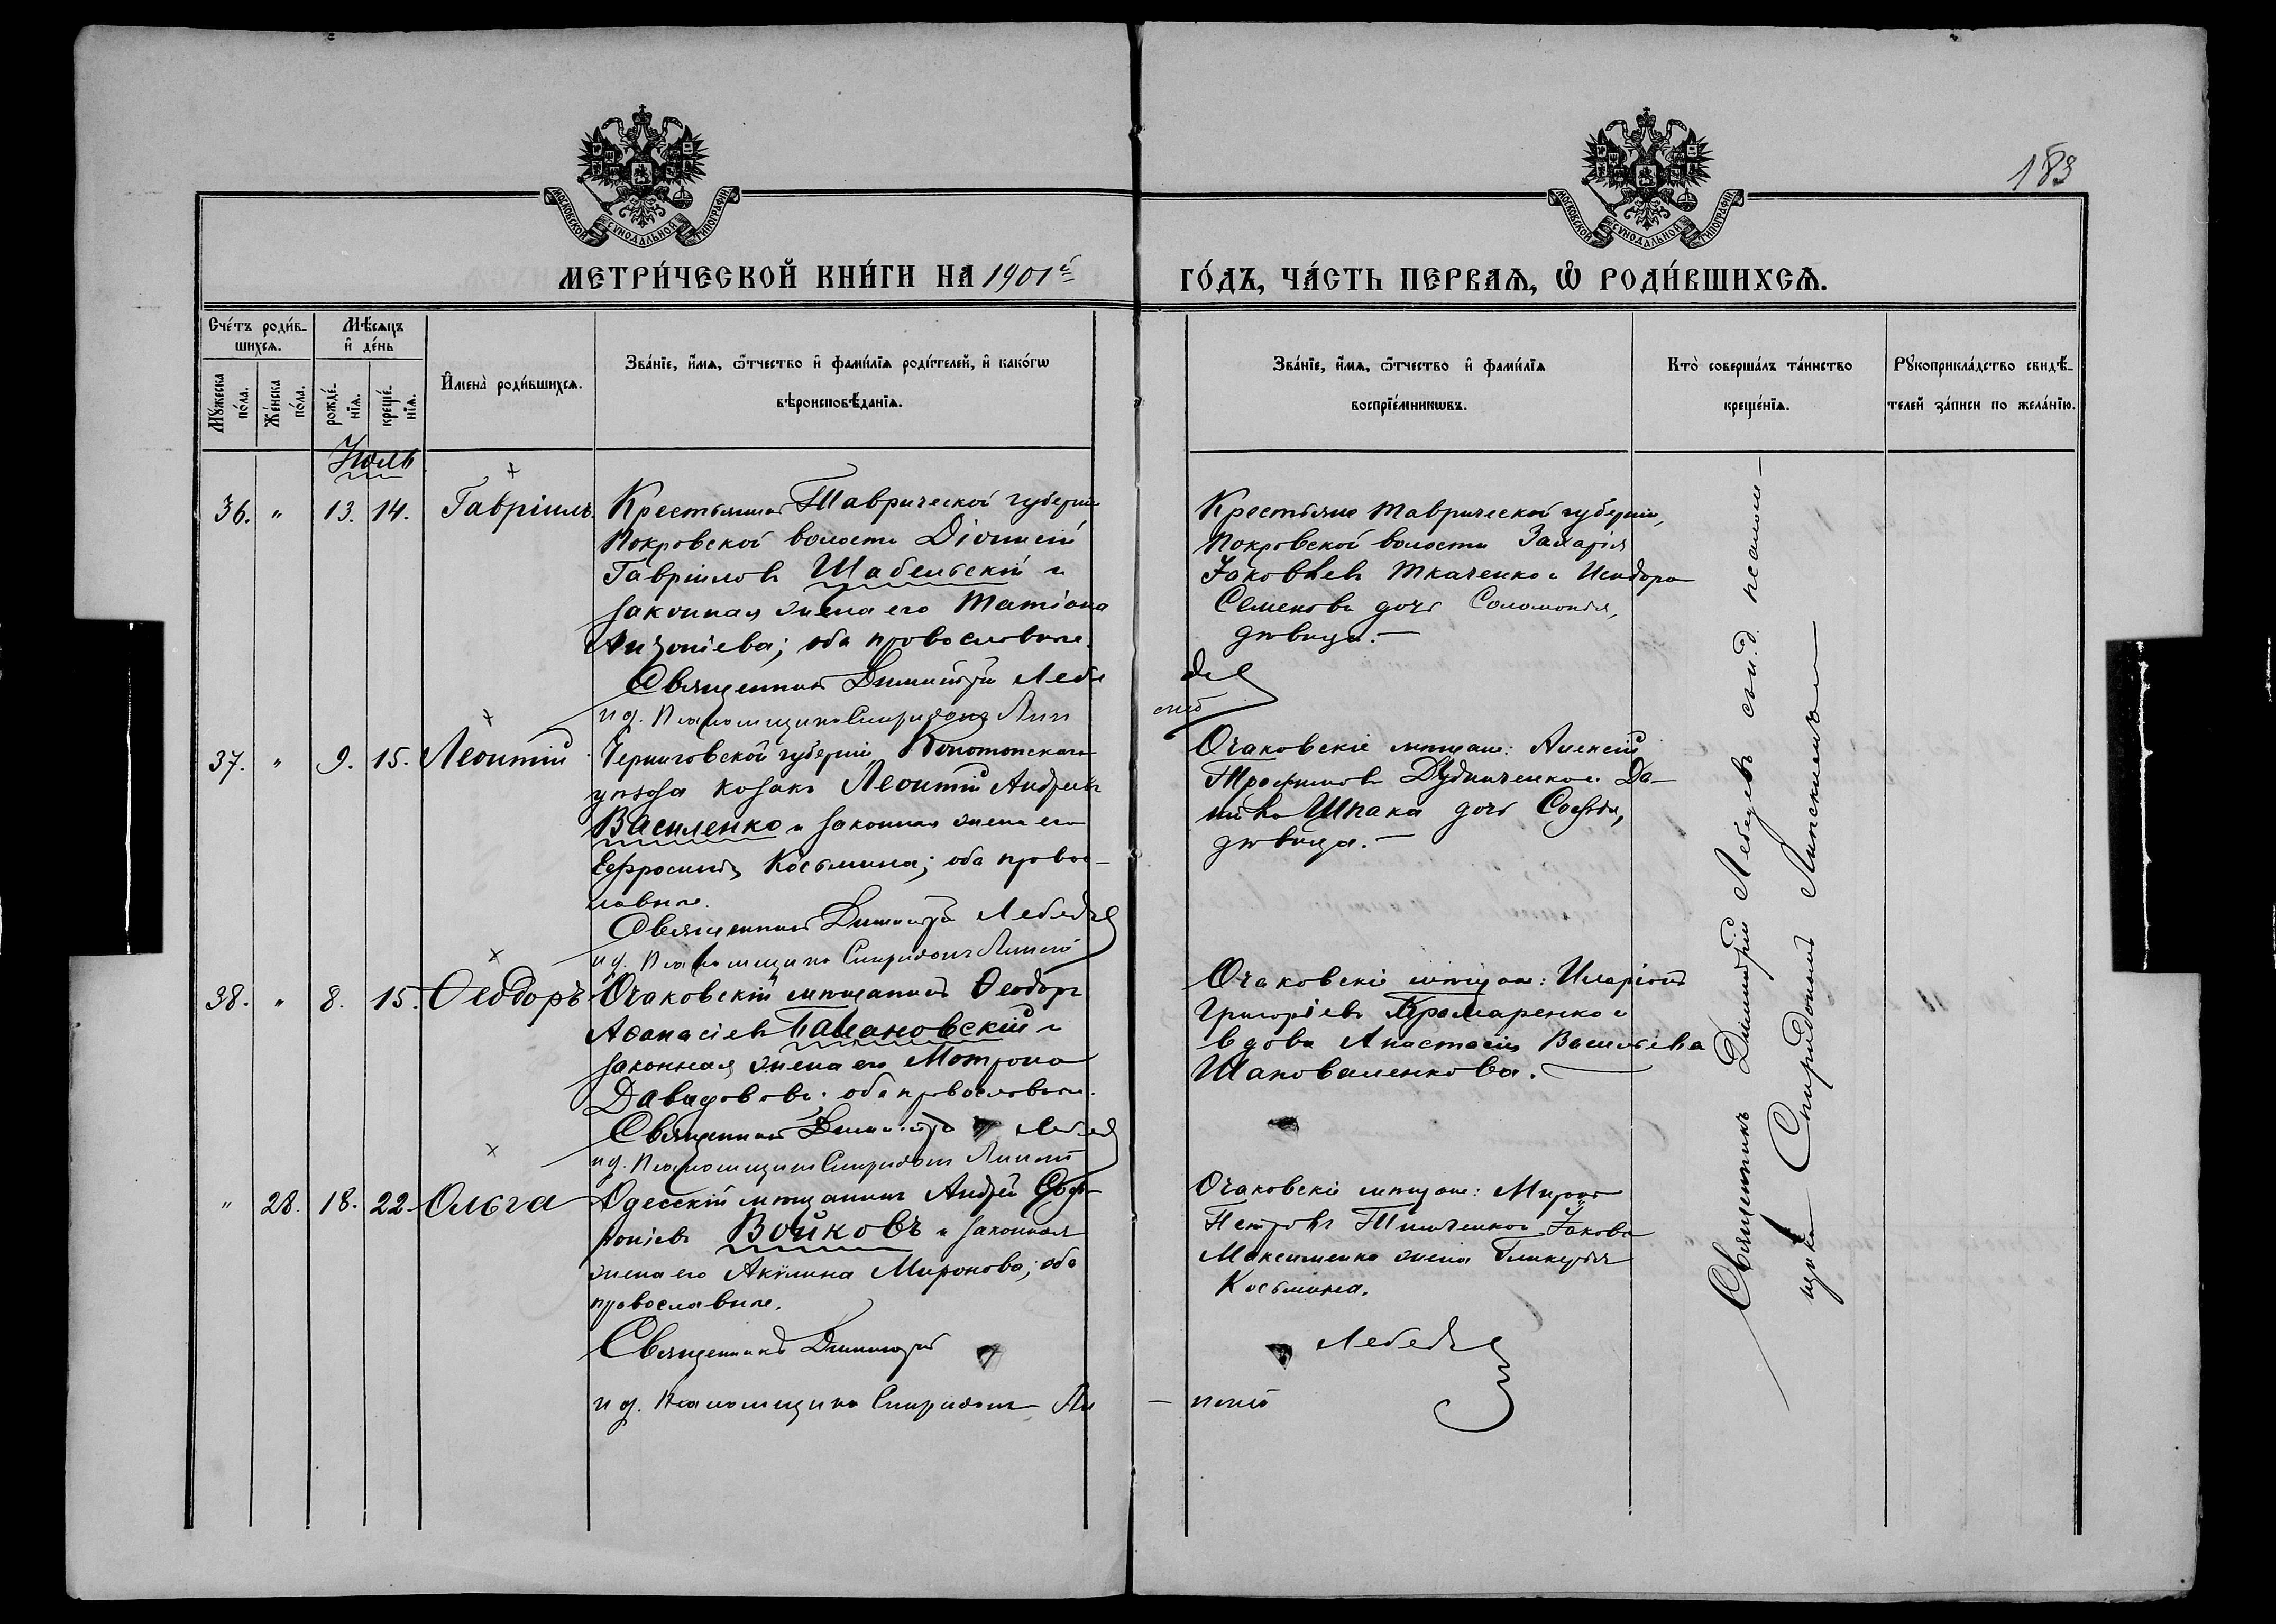 183
МОСКОВСКОЙ СѴНОДАЛЬНОЙ ТИПОГРАФІИ
МОСКОВСКОЙ СѴНОДАЛЬНОЙ ТИПОГРАФІИ
МЕТРИ́ЧЕСКОЙ КНИ́ГИ НА 1901й
ГО́ДЪ, ЧА́СТЬ ПЕРВАѦ, Ѡ РОДИ́ВШИХСѦ.
Сче́тъ роди́в-
шихсѧ.
Мꙋжеска по́ла.
Же́нска по́ла.
Мѣ́сѧцъ
и҆ де́нь
рожде́-
нїѧ.
креще́-
нїѧ.
И҆мена̀ роди́вшихсѧ.
Зва́нїе, и҆́мѧ, ѻ҆́тчество и҆ фами́лїѧ роди́телей, и҆ како́гѡ
вѣроисповѣ́данїѧ.
Зва́нїе, и҆́мѧ, ѻ҆́тчество и҆ фами́лїѧ
воспрїе́мникѡвъ.
Кто̀ соверша́лъ та́инство
креще́нїѧ.
Рꙋкоприкла́дство свидѣ́-
телей за́писи по жела́нїю.
Июль
36. " 13. 14. Гавріилъ.
Крестьянинъ Таврической губерніи
Покровской волости Діонисій
Гавріиловъ Шабельскій и
законная жена его Татіана
оба православные.
Священникъ Димитрій Лебе
дев
и д. Псаломщика Спиридонъ Лип
ский
Крестьяне Таврической губерніи,
Покровской волости Захарія
Іаковлевъ Ткаченко и Исидора
Семенова дочь Соломонія,
дѣвица.
37. " 9. 15. Леонтій
Черниговской губерніи, Конотопскаго
уѣзда козакъ Леонтій Андреевъ
Василенко и законная жена его
Евфросинія Косьмина; оба правос-
лавные.
Священникъ Димитрій Лебедев
и д. Псаломщика Спиридонъ Липский
Очаковскіе мѣщане: Алексій
Трофимовъ Дудниченко и Да-
нила Шпака дочь Софія,
дѣвица.
38. " 8. 15. Ѳеодоръ
Очаковскій мѣщанинъ Ѳеодоръ
Аѳанасіевъ
законная жена его Мотрона
Давидовова; оба православные.
Священникъ Димитрій Лебедев
и д. Псаломщика Спиридонъ Липский
Очаковскіе мѣщане: Иларіонъ
Григоріевъ Крамаренко и
вдова Анастасія Васильева
Шаповаленкова.
" 28. 18. 22. Ольга
Одесскій мѣщанинъ Андрей Соф-
роніевъ Войковъ и законная
жена его Акилина Миронова; оба
православные.
Священникъ Димитрій
Лебедев
и д. Псаломщика Спиридонъ Ли
пский
Очаковскіе мѣщане: Миронъ
Петровъ Іакова
Максименко жена Гликерія
Косьмина.
Священникъ Димитрій Лебедевъ съ и. д. псалом-
щика Спиридономъ Липскимъ